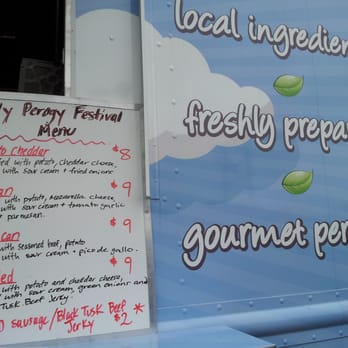 ly Perogy Festival
Menu
to cheddar $8
ed with potato, cheddar cheese,
with sour cream + fried onions
an $9
with potato, mozzarella cheese
with sour cream + tomato garlic
+ parmesan.
can $9
with seasoned beef, potato
with sour cream + pico de gallo.
ed $9
with potato and cheddar cheese,
with sour cream, green onions and
Tusk Beef Jerky.
D sausage/Black Tusk Beef
Jerky $2 *
local ingredie
freshly prepa
gourmet per